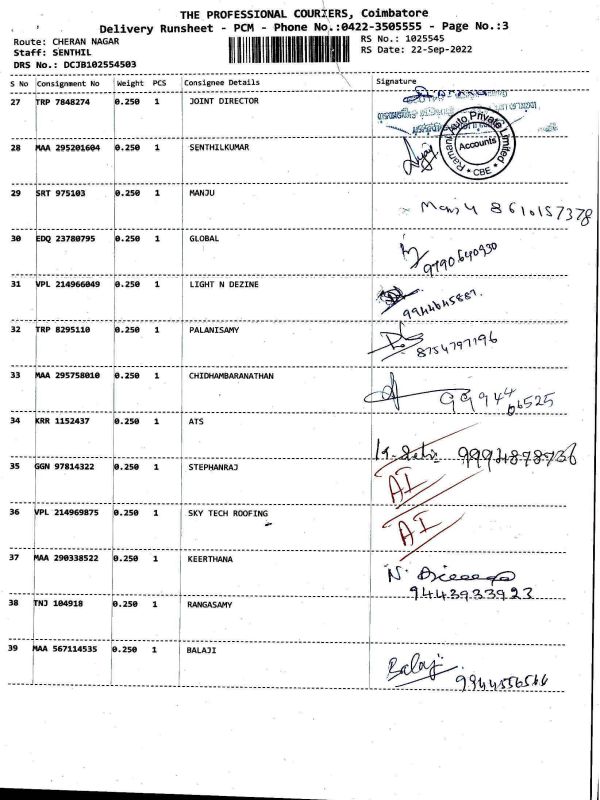 THE PROFESSIONAL COURIERS, Coimbatore
Delivery Runsheet - PCM - Phone No.:0422-3505555 - Page No.:3
Route: CHERAN NAGAR RS No.: 1025545
Staff: SENTHIL RS Date: 22-Sep-2022
DRS No.: DCJB102554503
S No Consignment No Weight PCS Consignee Details Signature
27 TRP 7848274 0.250 1 JOINT DIRECTOR
28 MAA 295201604 0.250 1 SENTHILKUMAR
Ramani Auto Private Limited
Accounts
* CBE *
29 SRT 975103 0.250 1 MANJU
Manju 8610157378
30 EDQ 23780795 0.250 1 GLOBAL
9790640930
31 VPL 214966049 0.250 1 LIGHT N DEZINE
9944645887.
32 TRP 8295110 0.250 1 PALANISAMY
8754797196
33 MAA 295758010 0.250 1 CHIDHAMBARANATHAN
99944
06525
34 KRR 1152437 0.250 1 ATS
9994878736
35 GGN 97814322 0.250 1 STEPHANRAJ
AI
36 VPL 214969875 0.250 1 SKY TECH ROOFING
AI
37 MAA 290338522 0.250 1 KEERTHANA
N.
9443933923
38 TNJ 104918 0.250 1 RANGASAMY
39 MAA 567114535 0.250 1 BALAJI
Balaji
9944556566